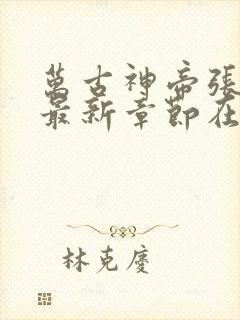 萬古神帝張
最新章節在
林克慶